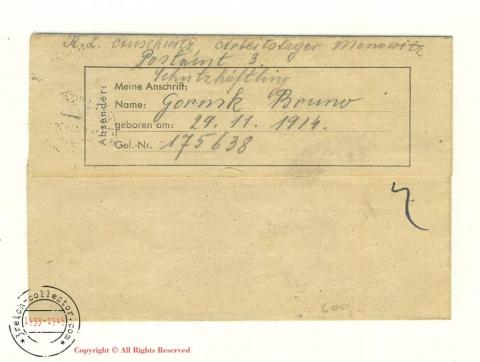 K. L. Auschwitz Arbeitslager Monowitz
Postamt 3.
Schutzhäftling
Absender:
Meine Anschrift:
Name: Gornik Bruno
geboren am: 29. 11. 1914.
Gef.-Nr. 175638
600
3reich-collector.com
1933-1945
Copyright © All Rights Reserved